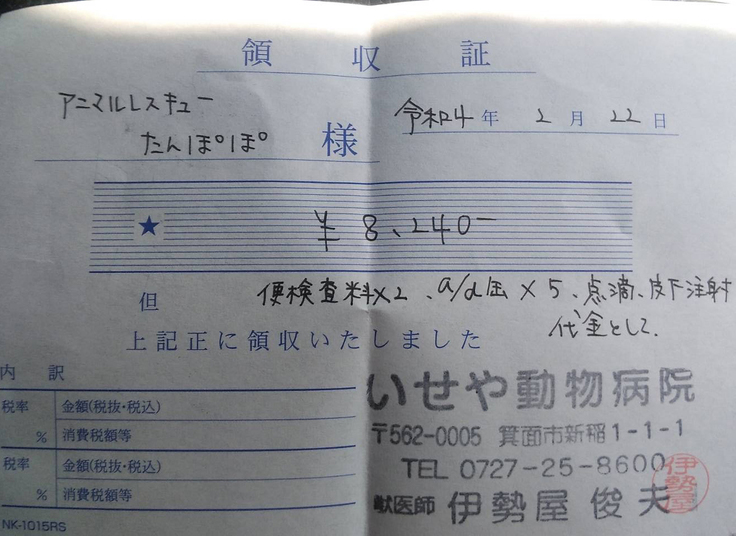 領収証
アニマルレスキュー
たんぽぽ 様
令和4年 2月 22日
★ ¥8,240-
但 便検査料×2、a/d缶×5、点滴、皮下注射
代金として.
上記正に領収いたしました
内 訳
税率 金額(税抜・税込)
% 消費税額等
税率 金額(税抜・税込)
% 消費税額等
NK-1015RS
いせや動物病院
〒562-0005 箕面市新稲1-1-1
TEL 0727-25-8600
獣医師 伊勢屋 俊夫
伊勢屋